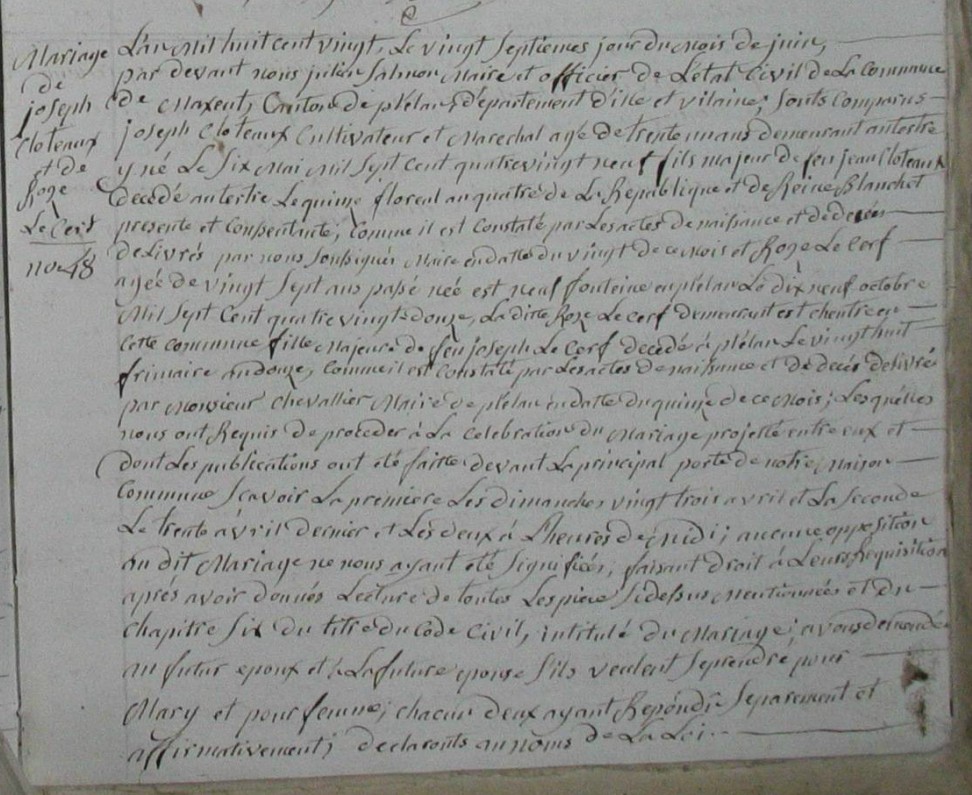 Mariage
de
joseph
Cloteaux
et de
Roze
Le Cerf
no 48
L'an Mil huit cent vingt, Le vingt Septiemes jour du Mois de juin,
par devant nous julien Salmon Maire et officier de L'état Civil de La Commune
de Maxent, Canton de plélan, département d'ille et vilaine; Sonts Comparus
joseph Cloteaux Cultivateur et Marechal agé de trente un ans demeurant au tertre
y né Le Six Mai Mil Sept Cent quatre vingt neuf fils majeur de feu jean Cloteaux
décédé au tertre Le quinze floreal an quatre de La République et de Reine Blanchet
presente et Consentante; Comme il est Constaté par Les actes de naissance et de décés
délivrés par nous Soussignés Maire en datte du vingt de ce Mois et Roze Le Cerf
agée de vingt Sept ans passé née est neuf fonteine en plélan Le dix neuf octobre
Mil Sept Cent quatre vingts douze, La ditte Roze Le cerf demeurant est en
cette commune fille Majeure de feu joseph Le Cerf décédé à plélan Le vingt huit
frimaire an douze, Comme il est Constaté par Les actes de naissance et de décés délivrés
par Monsieur chevallier Maire de plélan en datte du quinze de ce Mois; Lesquelles
nous ont Requis de procéder à La Celebration du Mariage projetté entre eux et
dont Les publications ont été faittes devant La principal porte de notre Maison
Commune Sçavoir La premiere Les dimanches vingt trois avril et La Seconde
Le trente avril dernier et Les deux à L'heures de midi; aucune opposition
au dit Mariage ne nous ayant été Signifiées, faisant droit à Leurs Requisition
aprés avoir donnés Lecture de toutes Les piece Sidessus Mentionnées et du
chapitre Six du titre du Code Civil, intitulé du Mariage; avons demandé
au futur epoux et à La future epouse S'ils veulent Se prendre pour
Mary et pour femme; chacun deux ayant Repondu Separement et
affirmativement; declaronts au noms de La Loi.